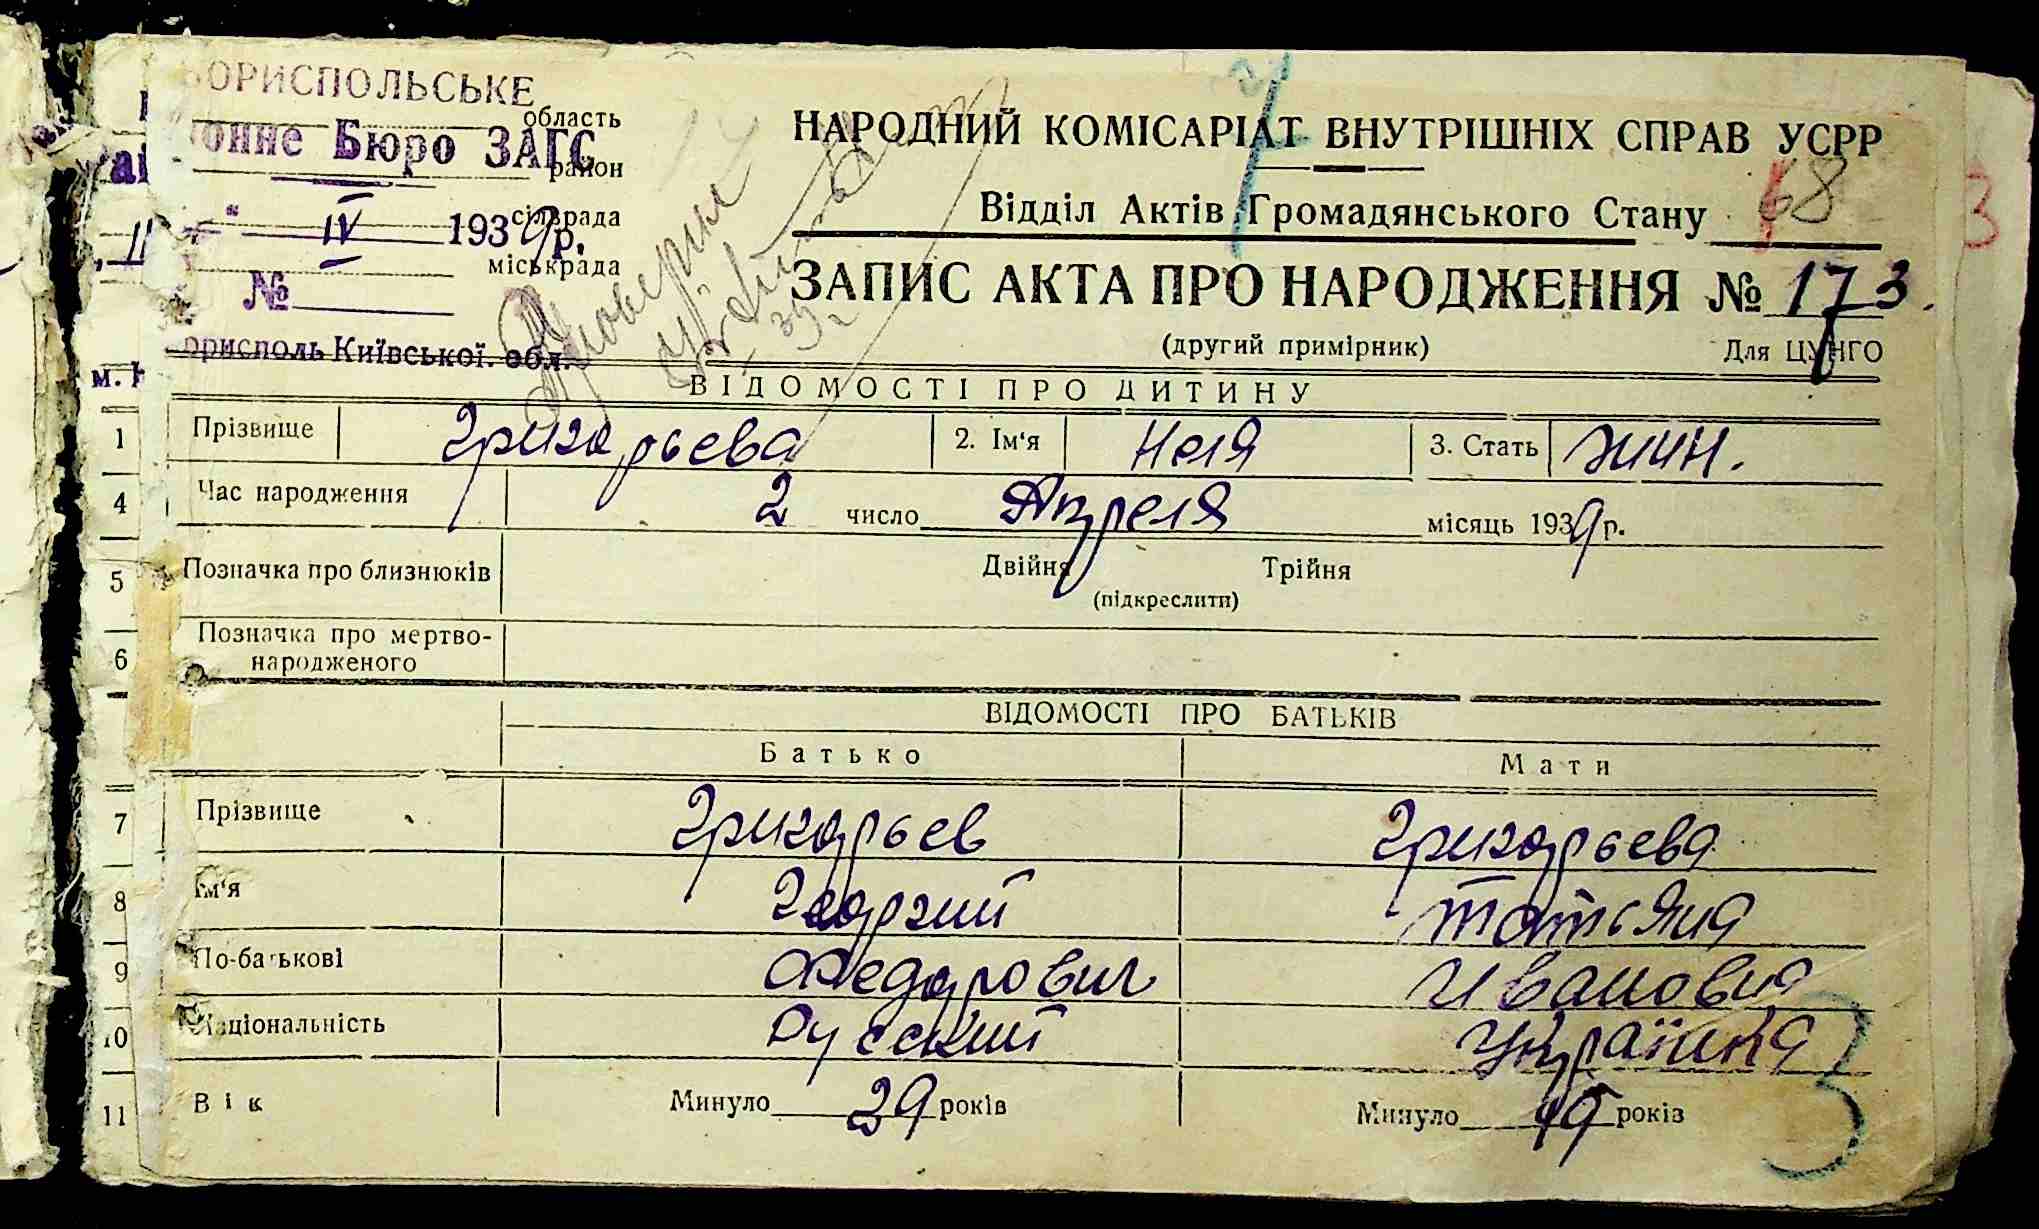 БОРИСПОЛЬСЬКЕ
область
Бюро ЗАГС
район
сільрада
IV 1939 р.
міськрада
№
Борисполь Київської обл.
НАРОДНИЙ КОМІСАРІАТ ВНУТРІШНІХ СПРАВ УСРР
68
Відділ Актів Громадянського Стану
3
ЗАПИС АКТА ПРО НАРОДЖЕННЯ № 173
(другий примірник) Для ЦУНГО
ВІДОМОСТІ ПРО ДИТИНУ
1 Прізвище Григорьева 2. Ім'я Неля 3. Стать жин.
4 Час народження 2 число Апреля місяць 1939 р.
5 Позначка про близнюків Двійня Трійня
(підкреслити)
6 Позначка про мертво-
народженого
ВІДОМОСТІ ПРО БАТЬКІВ
Батько Мати
7 Прізвище Григорьев Григорьева
8 Ім'я Георгий Татьяна
9 По-батькові Федорович Ивановна
10 Національність Русский Українка
11 Вік Минуло 29 років Минуло 19 років
3